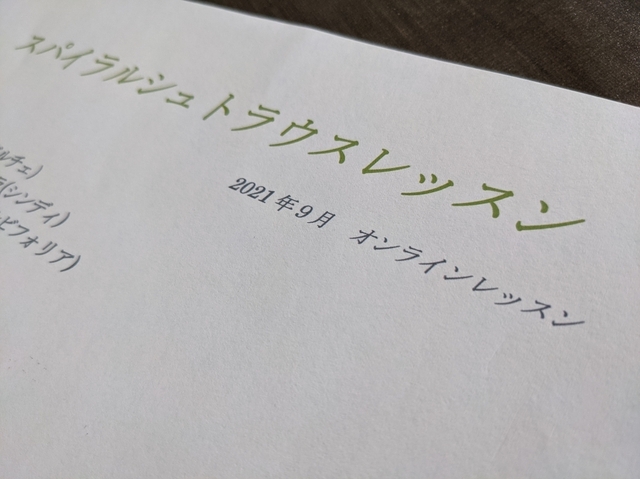 スパイラルシュトラウスレッスン
2021年9月 オンラインレッスン
ルチェ)
(シンディ)
ピフォリア)